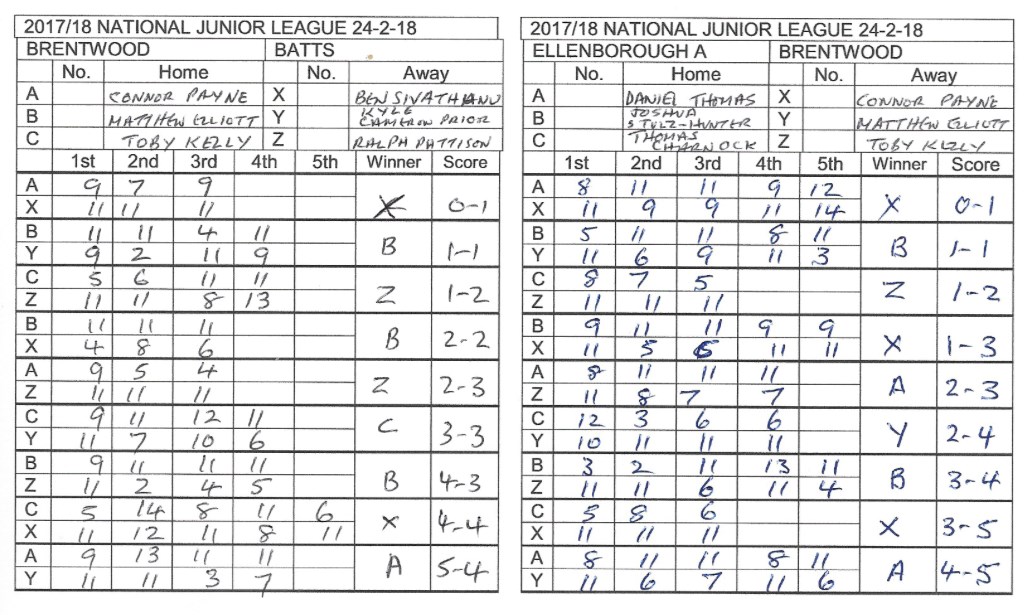 2017/18 NATIONAL JUNIOR LEAGUE 24-2-18
BRENTWOOD BATTS
No. Home No. Away
A CONNOR PAYNE X BEN SIVATHIANU
B MATTHEW ELLIOTT Y KYLE CAMERON PRIOR
C TOBY KELLY Z RALPH PATTISON
1st 2nd 3rd 4th 5th Winner Score
A 9 7 9
X 11 11 11 X 0-1
B 11 11 4 11
Y 9 2 11 9 B 1-1
C 5 6 11 11
Z 11 11 8 13 Z 1-2
B 11 11 11
X 4 8 6 B 2-2
A 9 5 4
Z 11 11 11 Z 2-3
C 9 11 12 11
Y 11 7 10 6 C 3-3
B 9 11 11 11
Z 11 2 4 5 B 4-3
C 5 14 8 11 6
X 11 12 11 8 11 X 4-4
A 9 13 11 11
Y 11 11 3 7 A 5-4
2017/18 NATIONAL JUNIOR LEAGUE 24-2-18
ELLENBOROUGH A BRENTWOOD
No. Home No. Away
A DANIEL THOMAS X CONNOR PAYNE
B JOSHUA STULZ-HUNTER Y MATTHEW ELLIOTT
C THOMAS CHARNOCK Z TOBY KELLY
1st 2nd 3rd 4th 5th Winner Score
A 8 11 11 9 12
X 11 9 9 11 14 X 0-1
B 5 11 11 8 11
Y 11 6 9 11 3 B 1-1
C 8 7 5
Z 11 11 11 Z 1-2
B 9 11 11 9 9
X 11 5 6 11 11 X 1-3
A 8 11 11 11
Z 11 8 7 7 A 2-3
C 12 3 6 6
Y 10 11 11 11 Y 2-4
B 3 2 11 13 11
Z 11 11 6 11 4 B 3-4
C 5 8 6
X 11 11 11 X 3-5
A 8 11 11 8 11
Y 11 6 7 11 6 A 4-5